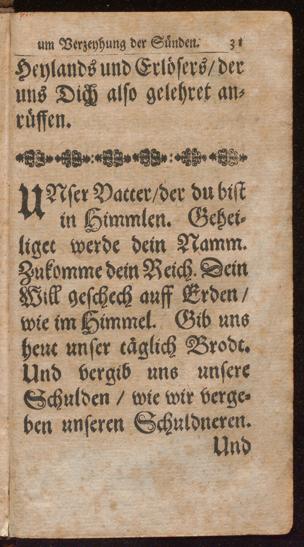 um Verzeyhung der Sünden. 31
Heylands und Erlösers/ der
uns Dich also gelehret an-
rüffen.
UNser Vatter/ der du bist
in Himmlen. Gehei-
liget werde dein Namm.
Zukomme dein Reich. Dein
Will geschech auff Erden/
wie im Himmel. Gib uns
heut unser täglich Brodt.
Und vergib uns unsere
Schulden / wie wir verge-
ben unseren Schuldneren.
Und